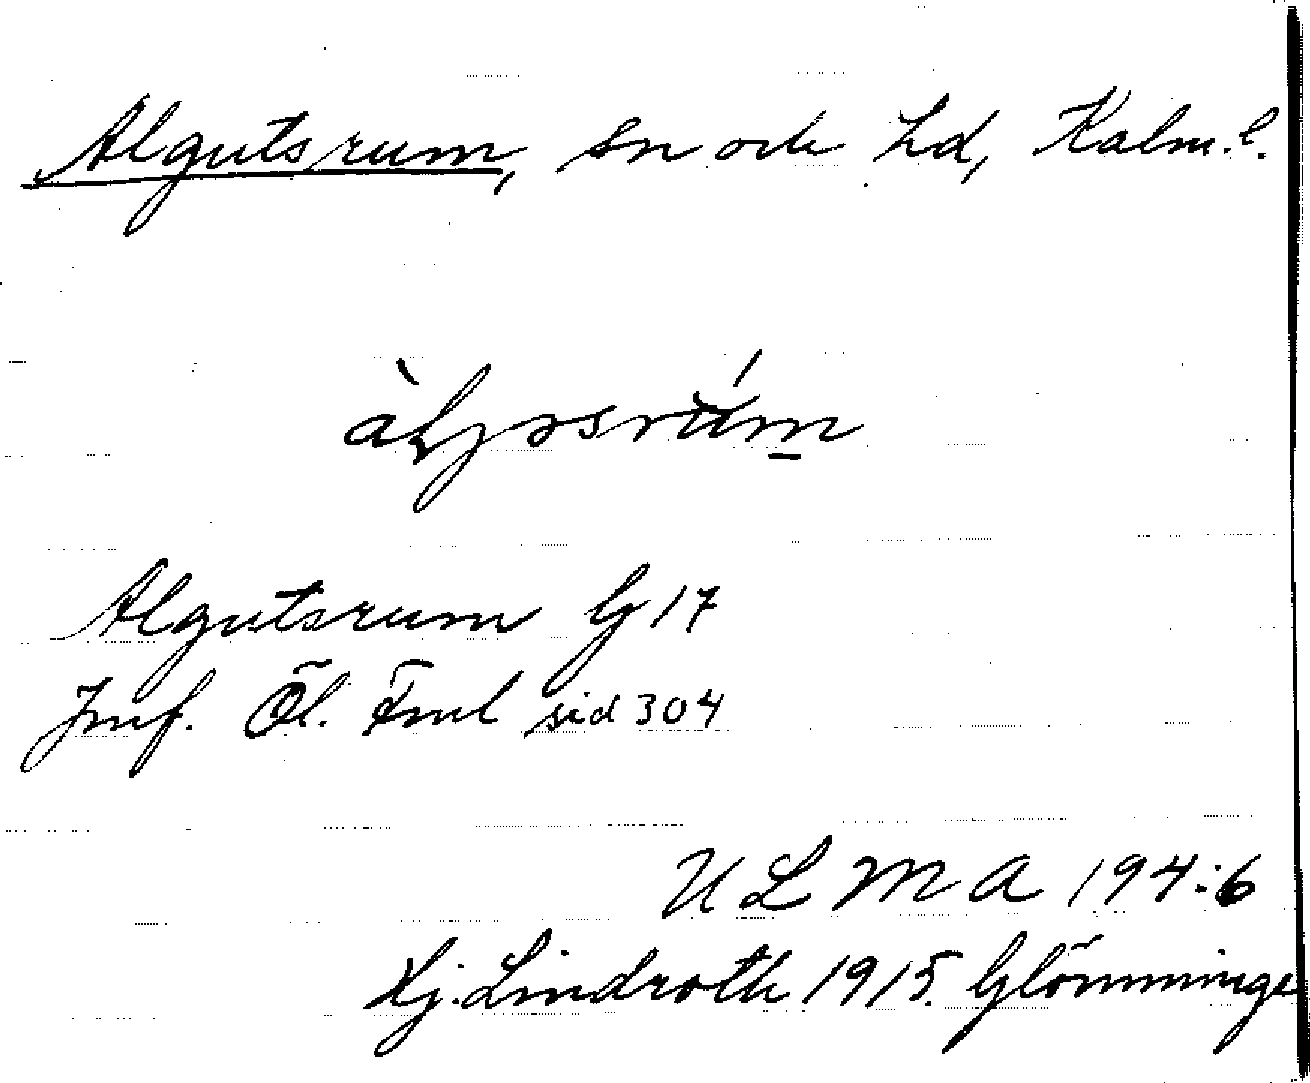 Algutsrum, sn och hd, Kalm. l.
Algutsrum G 17
Jmf. Öl. Fml sid 304
ULMA 194:6
Hj. Lindroth 1915. Glömminge